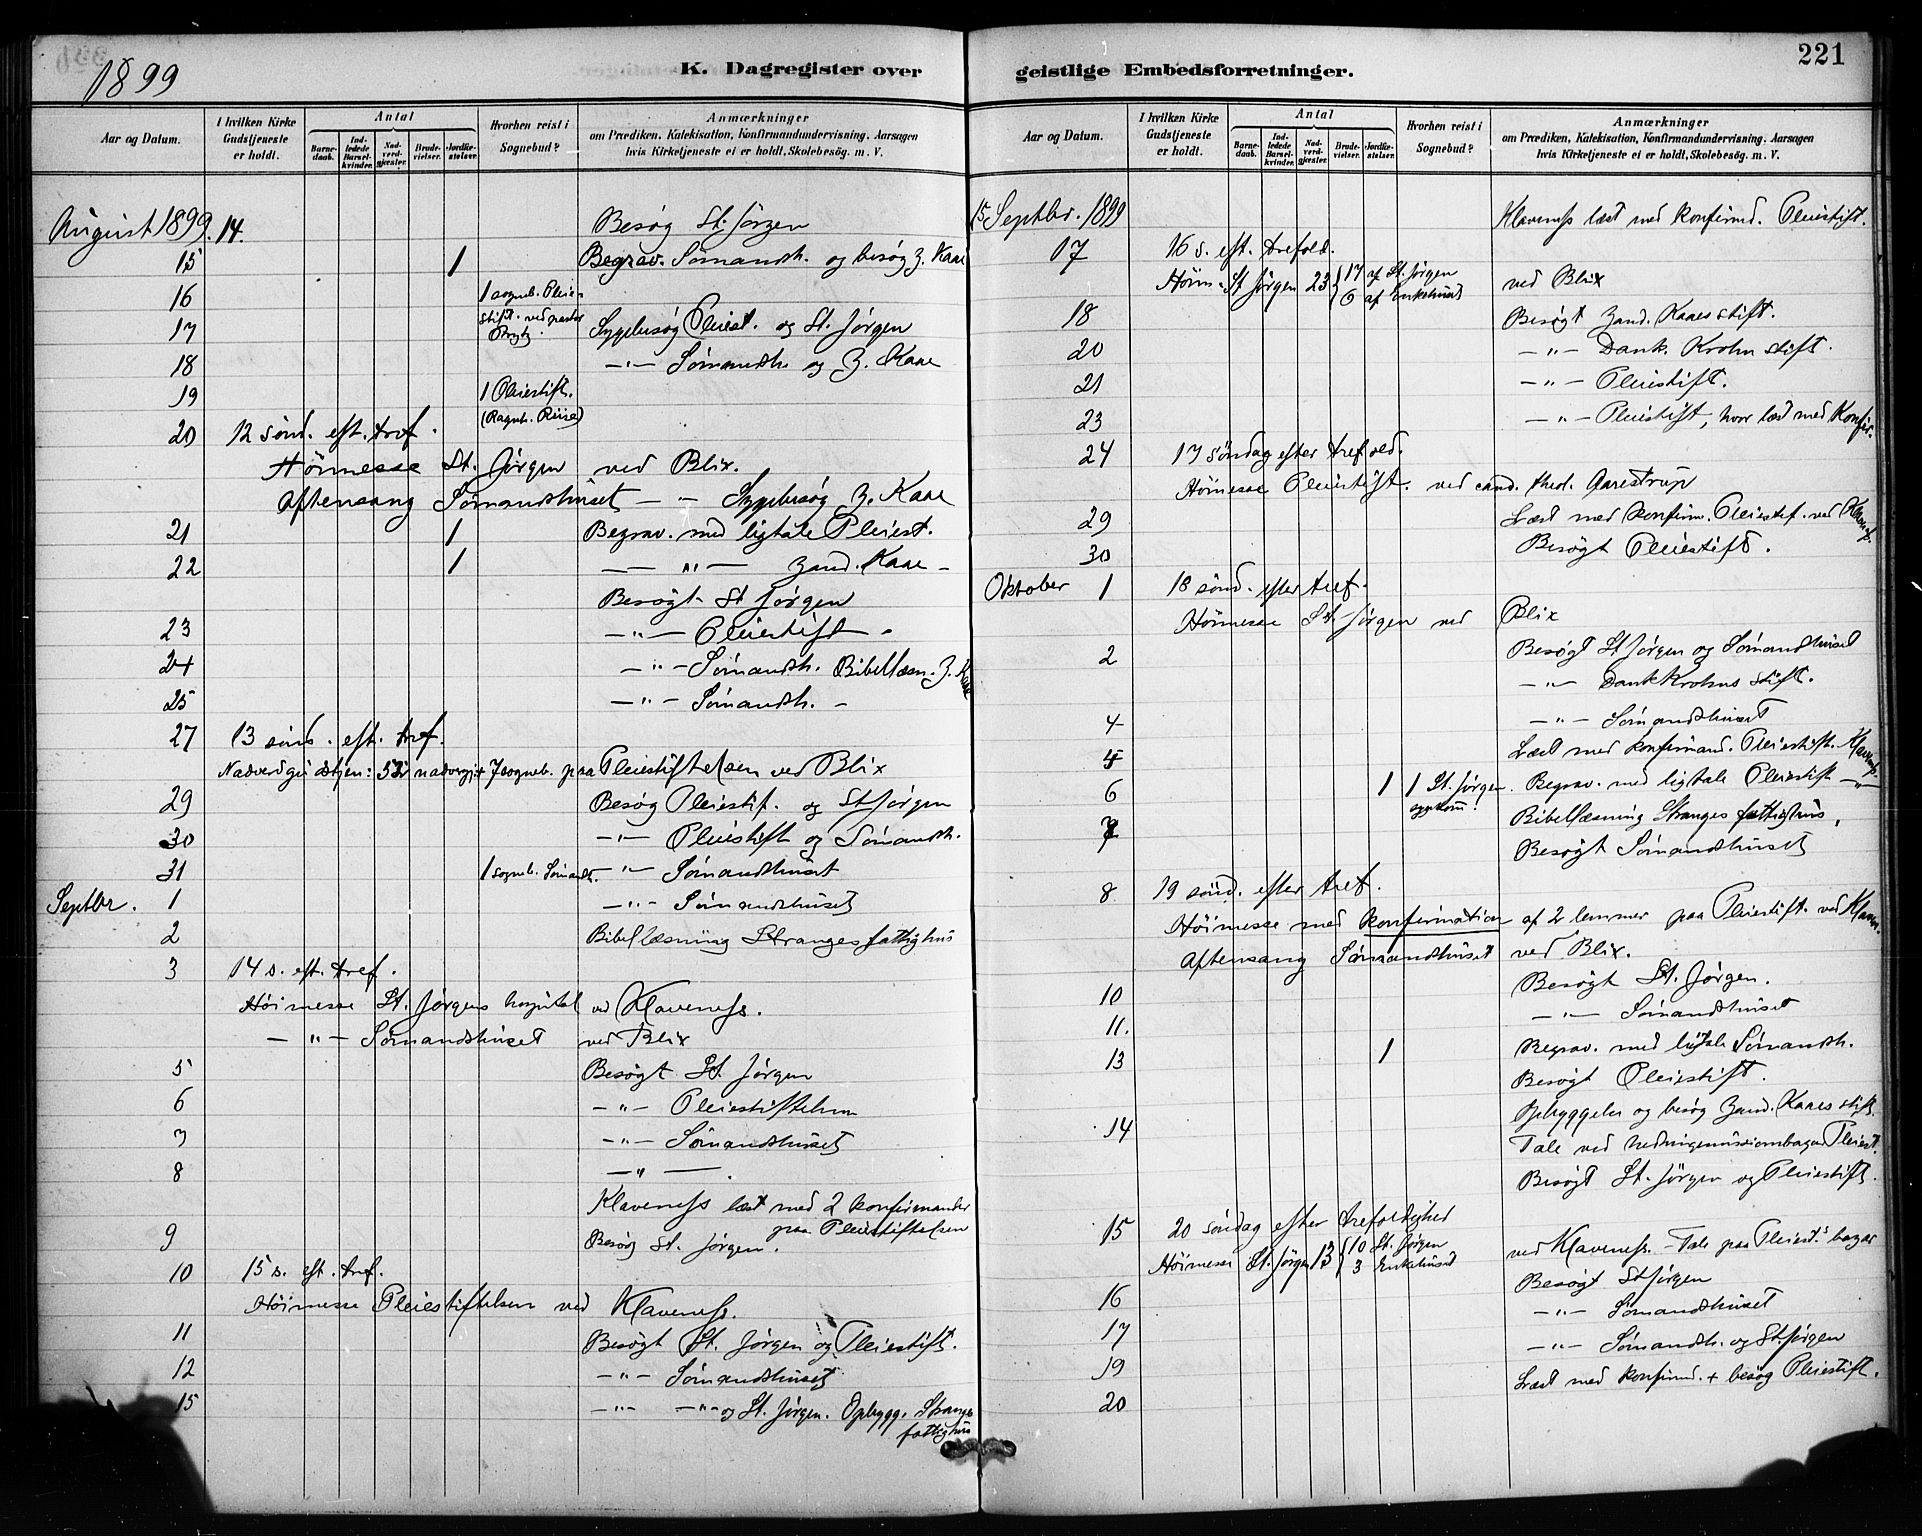 1899
K. Dagregister over
Aar og Datum.
I hvilken Kirke Gudstjeneste er holdt.
Antal
Barnedaab.
Indledede Barselkvinder.
Nadverdgjester.
Brudevielser.
Jordfæstelser.
Hvorhen reist i Sognebud?
Anmærkninger
om Prædiken, Katekisation, Konfirmandundervisning, Aarsagen
hvis Kirketjeneste ei er holdt, Skolebesøg. m. V.
August 1899. 14. Besøg St. Jørgen
15 1 Begrav. Sømandh. og besøg Z. Kaae
16 1 sogneb. Pleiestift. ved pastor
17 Sygebesøg Pleiest. og St. Jørgen
18 —"— Sømandh. og Z. Kaae
19 1 Pleiestift.
20 12 sønd. eft. tref.
Høimesse St. Jørgen ved Blix.
Aftensang Sømandshuset —"— Sygebesøg Z. Kaae
21 1 Begrav. med ligtale Pleiest.
22 1 —"— Zand. Kaae —
Besøgt St Jørgen
23 —"— Pleiestift —
24 —"— Sømandh. Bibellæsn. Z. Kaae
25 —"— Sømandh. —
27 13 sønd. eft. tref.
7 sogneb. paa Pleiestiftelsen ved Blix
29 Besøg Pleiestif. og St Jørgen
30 —"— Pleiestift og Sømandh.
31 1 sogneb. Sømandh. —"— Sømandshuset
Septbr. 1 —"— Sømandshuset
2 Bibellæsning Stranges fattighus
3 14 s. eft. tref.
Høimesse St. Jørgens hospital ved Klaveness.
—"— Sømandshuset ved Blix
5 Besøgt St. Jørgen
6 —"— Pleiestiftelsen
7 —"— Sømandshuset
8 —"—
Klaveness læst med 2 konfirmander
paa Pleiestiftelsen
9 Besøg St. Jørgen.
10 15 s. eft. tref.
Høimesse Pleiestiftelsen ved Klaveness.
11 Besøgt St. Jørgen og Pleiestift.
12 —"— Sømandshuset
15 —"— —"— og St. Jørgen. Opbygg. Stranges
fattighus
221
geistlige Embedsforretninger.
Aar og Datum.
I hvilken Kirke Gudstjeneste er holdt.
Antal
Barnedaab.
Indledede Barselkvinder.
Nadverdgjester.
Brudevielser.
Jordfæstelser.
Hvorhen reist i Sognebud?
Anmærkninger
om Prædiken, Katekisation, Konfirmandundervisning, Aarsagen
hvis Kirketjeneste ei er holdt, Skolebesøg. m. V.
15 Septbr. 1899 Klaveness læst med konfirmd. Pleiestift.
17 16 s. eft. trefold.
Høim - St Jørgen 23 { 17 af St. Jørgen 6 af Enkehuset ved Blix
18 Besøgt Zand. Kaaes stift.
20 —"— Dank. Krohn stift.
21 —"— Pleiestift.
23 —"— Pleiestift, hvor læst med Konfir.
24 17 søndag efter trefold.
Høimesse Pleiestift. ved cand. theol. Aarestrup
29 Læst med konfirm. Pleiestif. ved Klavness.
30 Besøgt Pleiestift.
Oktober 1 18 sønd. efter tref.
Høimesse St. Jørgen ved Blix
2 Besøgt St Jørgen og Sømandshuset
—"— Dank Krohns stift.
4 —"— Sømandshuset
5 Læst med konfirmand. Pleiestift. Klavness.
6 1 1 St. Jørgen. Begrav. med ligtale Pleiestift —"—
7 Bibellæsning Stranges fattighus,
Besøgt Sømandshuset
8 19 sønd. efter tref.
Høimesse med konfirmation af 2 lemmer paa Pleiestift. ved Klaven.
Aftensang Sømandshuset ved Blix.
10 Besøgt St. Jørgen.
11. —"— Sømandshuset
13 1 Begrav. med ligtale Sømandh.
Besøgt Pleiestift.
14 Opbyggelse og besøg Zand. Kaaes stift.
Tale ved hedningemissionbazar Pleiest.
Besøgt St. Jørgen og Pleiestift.
15 20 søndag efter trefoldighed
Høimesse St. Jørgen 13 { 10 St. Jørgen 3 Enkehuset ved Klaveness. - Tale paa Pleiest.s bazar
16 Besøgt St Jørgen
17 —"— Sømandshuset
19 —"— Sømandh. og St. Jørgen
20 Læst med konfirmd. + besøg Pleiestift.